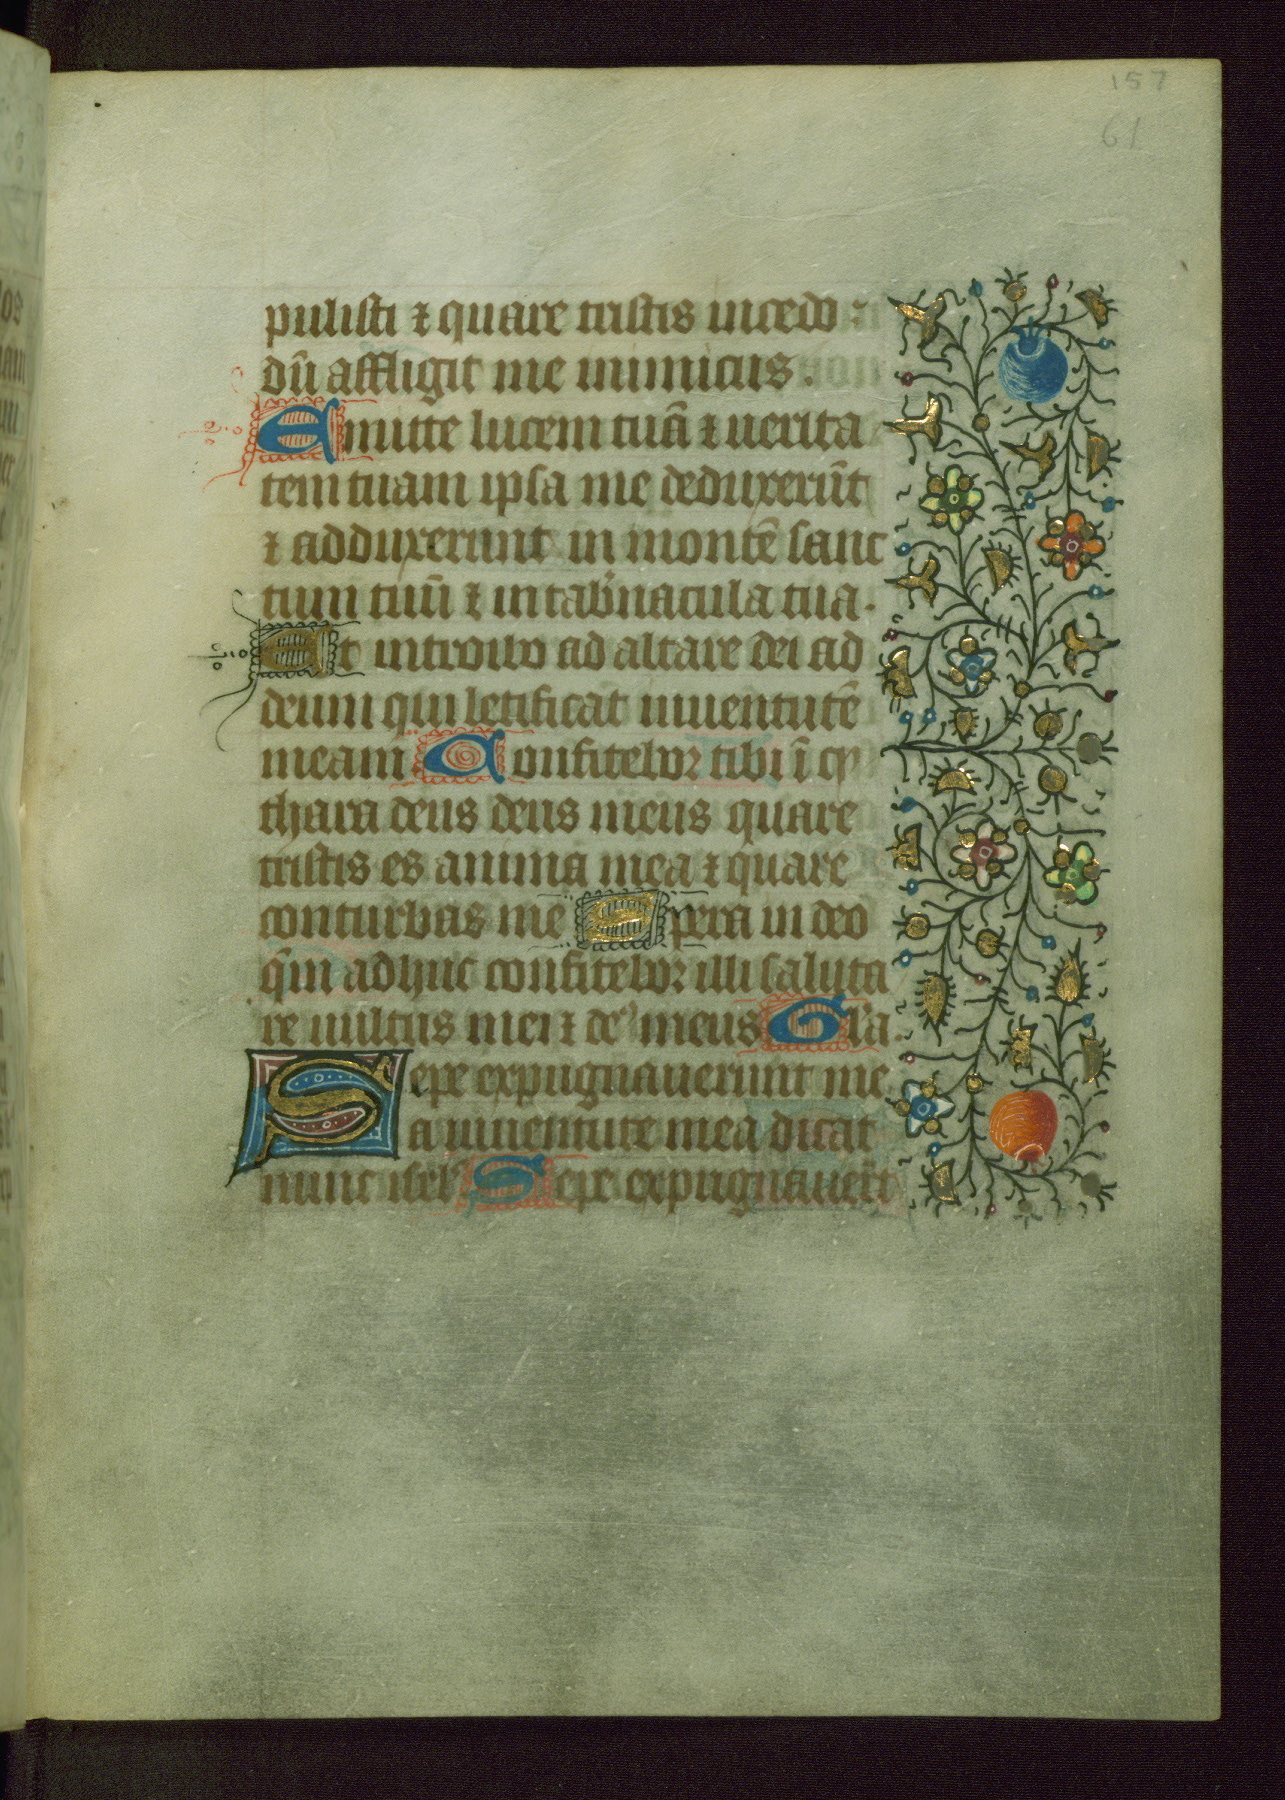 157
61
pulisti ⁊ quare tristis incedo
dū affligit me inimicus.
Emitte lucem tuā ⁊ uerita
tem tuam ipsa me deduxerūt
⁊ adduxerunt in montē sanc
tum tuū ⁊ in tab̄nacula tua.
Et introibo ad altare dei ad
deum qui letificat iuuentutē
meam Confitebor tibi ī cy
thara deus deus meus quare
tristis es anima mea ⁊ quare
conturbas me Spera in deo
qm̄ adhuc confitebor illi saluta
re uultus mei ⁊ de9 meus Gl'a.
Sepe expugnauerunt me
a iuuentute mea dicat
nunc isrl' Sepe expugnauer̄t